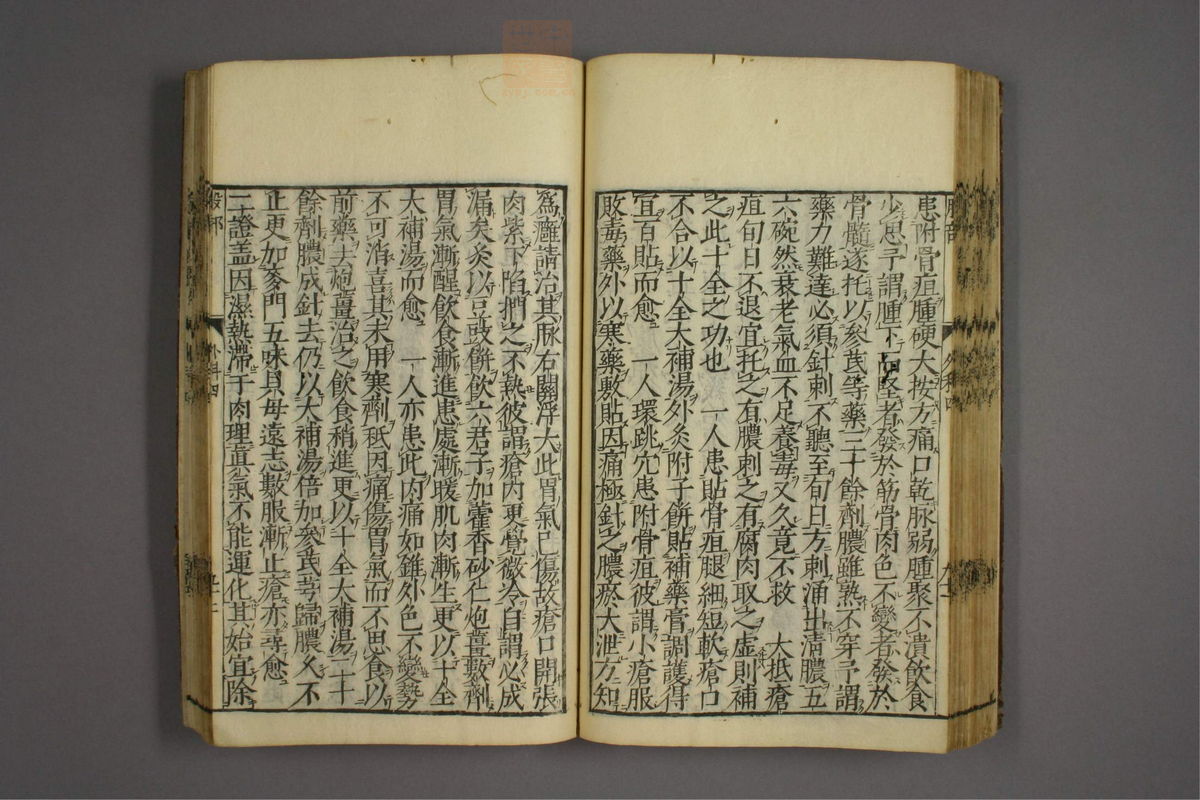 患附骨疽腫硬大按方痛口乾脉弱腫聚不潰飲食
少思予謂腫下堅者發於筋骨肉色不變者發於
骨髓遂托以參芪等藥三十餘劑膿雖熟不穿予謂
藥力難達必須針刺不聽至旬日方刺涌出清膿五
六碗然衰老氣血不足養毒又久竟不救　大抵瘡
疽旬日不退宜托之有膿刺之有腐肉取之虛則補
之此十全之功也　一人患貼骨疽腿細短軟瘡口
不合以十全大補湯外灸附子餅貼補藥膏調護得
宜百貼而愈　一人環跳穴患附骨疽彼謂小瘡服
敗毒藥外以寒藥敷貼因痛極針之膿瘀大泄方知
爲癰請治其脉右關浮大此胃氣已傷故瘡口開張
肉紫下陷捫之不熱彼謂瘡內更覺微冷自謂必成
漏矣灸以豆豉餅飲六君子加藿香砂仁炮薑數劑
胃氣漸醒飲食漸進患處漸暖肌肉漸生更以十全
大補湯而愈　一人亦患此肉痛如錐外色不變勢
不可消喜其未用寒劑秪因痛傷胃氣而不思食以
前藥去炮薑治之飲食稍進更以十全大補湯二十
餘劑膿成針去仍以大補湯倍加參芪芎歸膿久不
止更加麥門五味貝母遠志數服漸止瘡亦尋愈
二十證盖因濕熱滯于肉理眞氣不能運化其始宜除
外科四